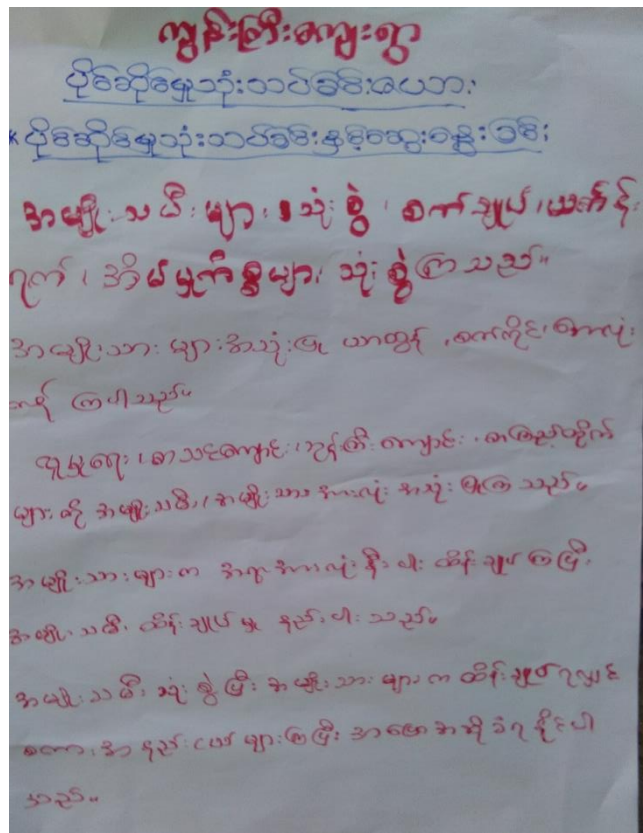 ကျွန်းကြီးကျေးရွာ
ပိုင်ဆိုင်မှုသုံးသပ်ခြင်းဇယား
ပိုင်ဆိုင်မှုသုံးသပ်ခြင်းနှင့်ဆွေးနွေးခြင်း
အမျိုးသမီးများ သုံးစွဲ၊ စက်ချုပ်၊ ယက်ကန်း
ရက်၊ အိမ်မှုကိစ္စများ သုံးစွဲကြသည်။
အမျိုးသားများအသုံးပြု ယာထွန်၊ စက်ကိုင်၊ ဘောလုံး
ကန်ကြပါသည်။
လူမှုရေး၊ စာသင်ကျောင်း၊ ဘုန်းကြီးကျောင်း၊ စာကြည့်တိုက်
များကို အမျိုးသမီး၊ အမျိုးသားအားလုံး အသုံးပြုကြသည်။
အမျိုးသားများက အရာအားလုံးနီးပါး ထိန်းချုပ်ကြပြီး
အမျိုးသမီး ထိန်းချုပ်မှု နည်းပါးသည်။
အမျိုးသမီးသုံးစွဲပြီး အမျိုးသားများက ထိန်းချုပ်ရလျှင်
စကားအနည်းငယ်များကြပြီး အပြောအဆိုခံရနိုင်ပါ
သည်။